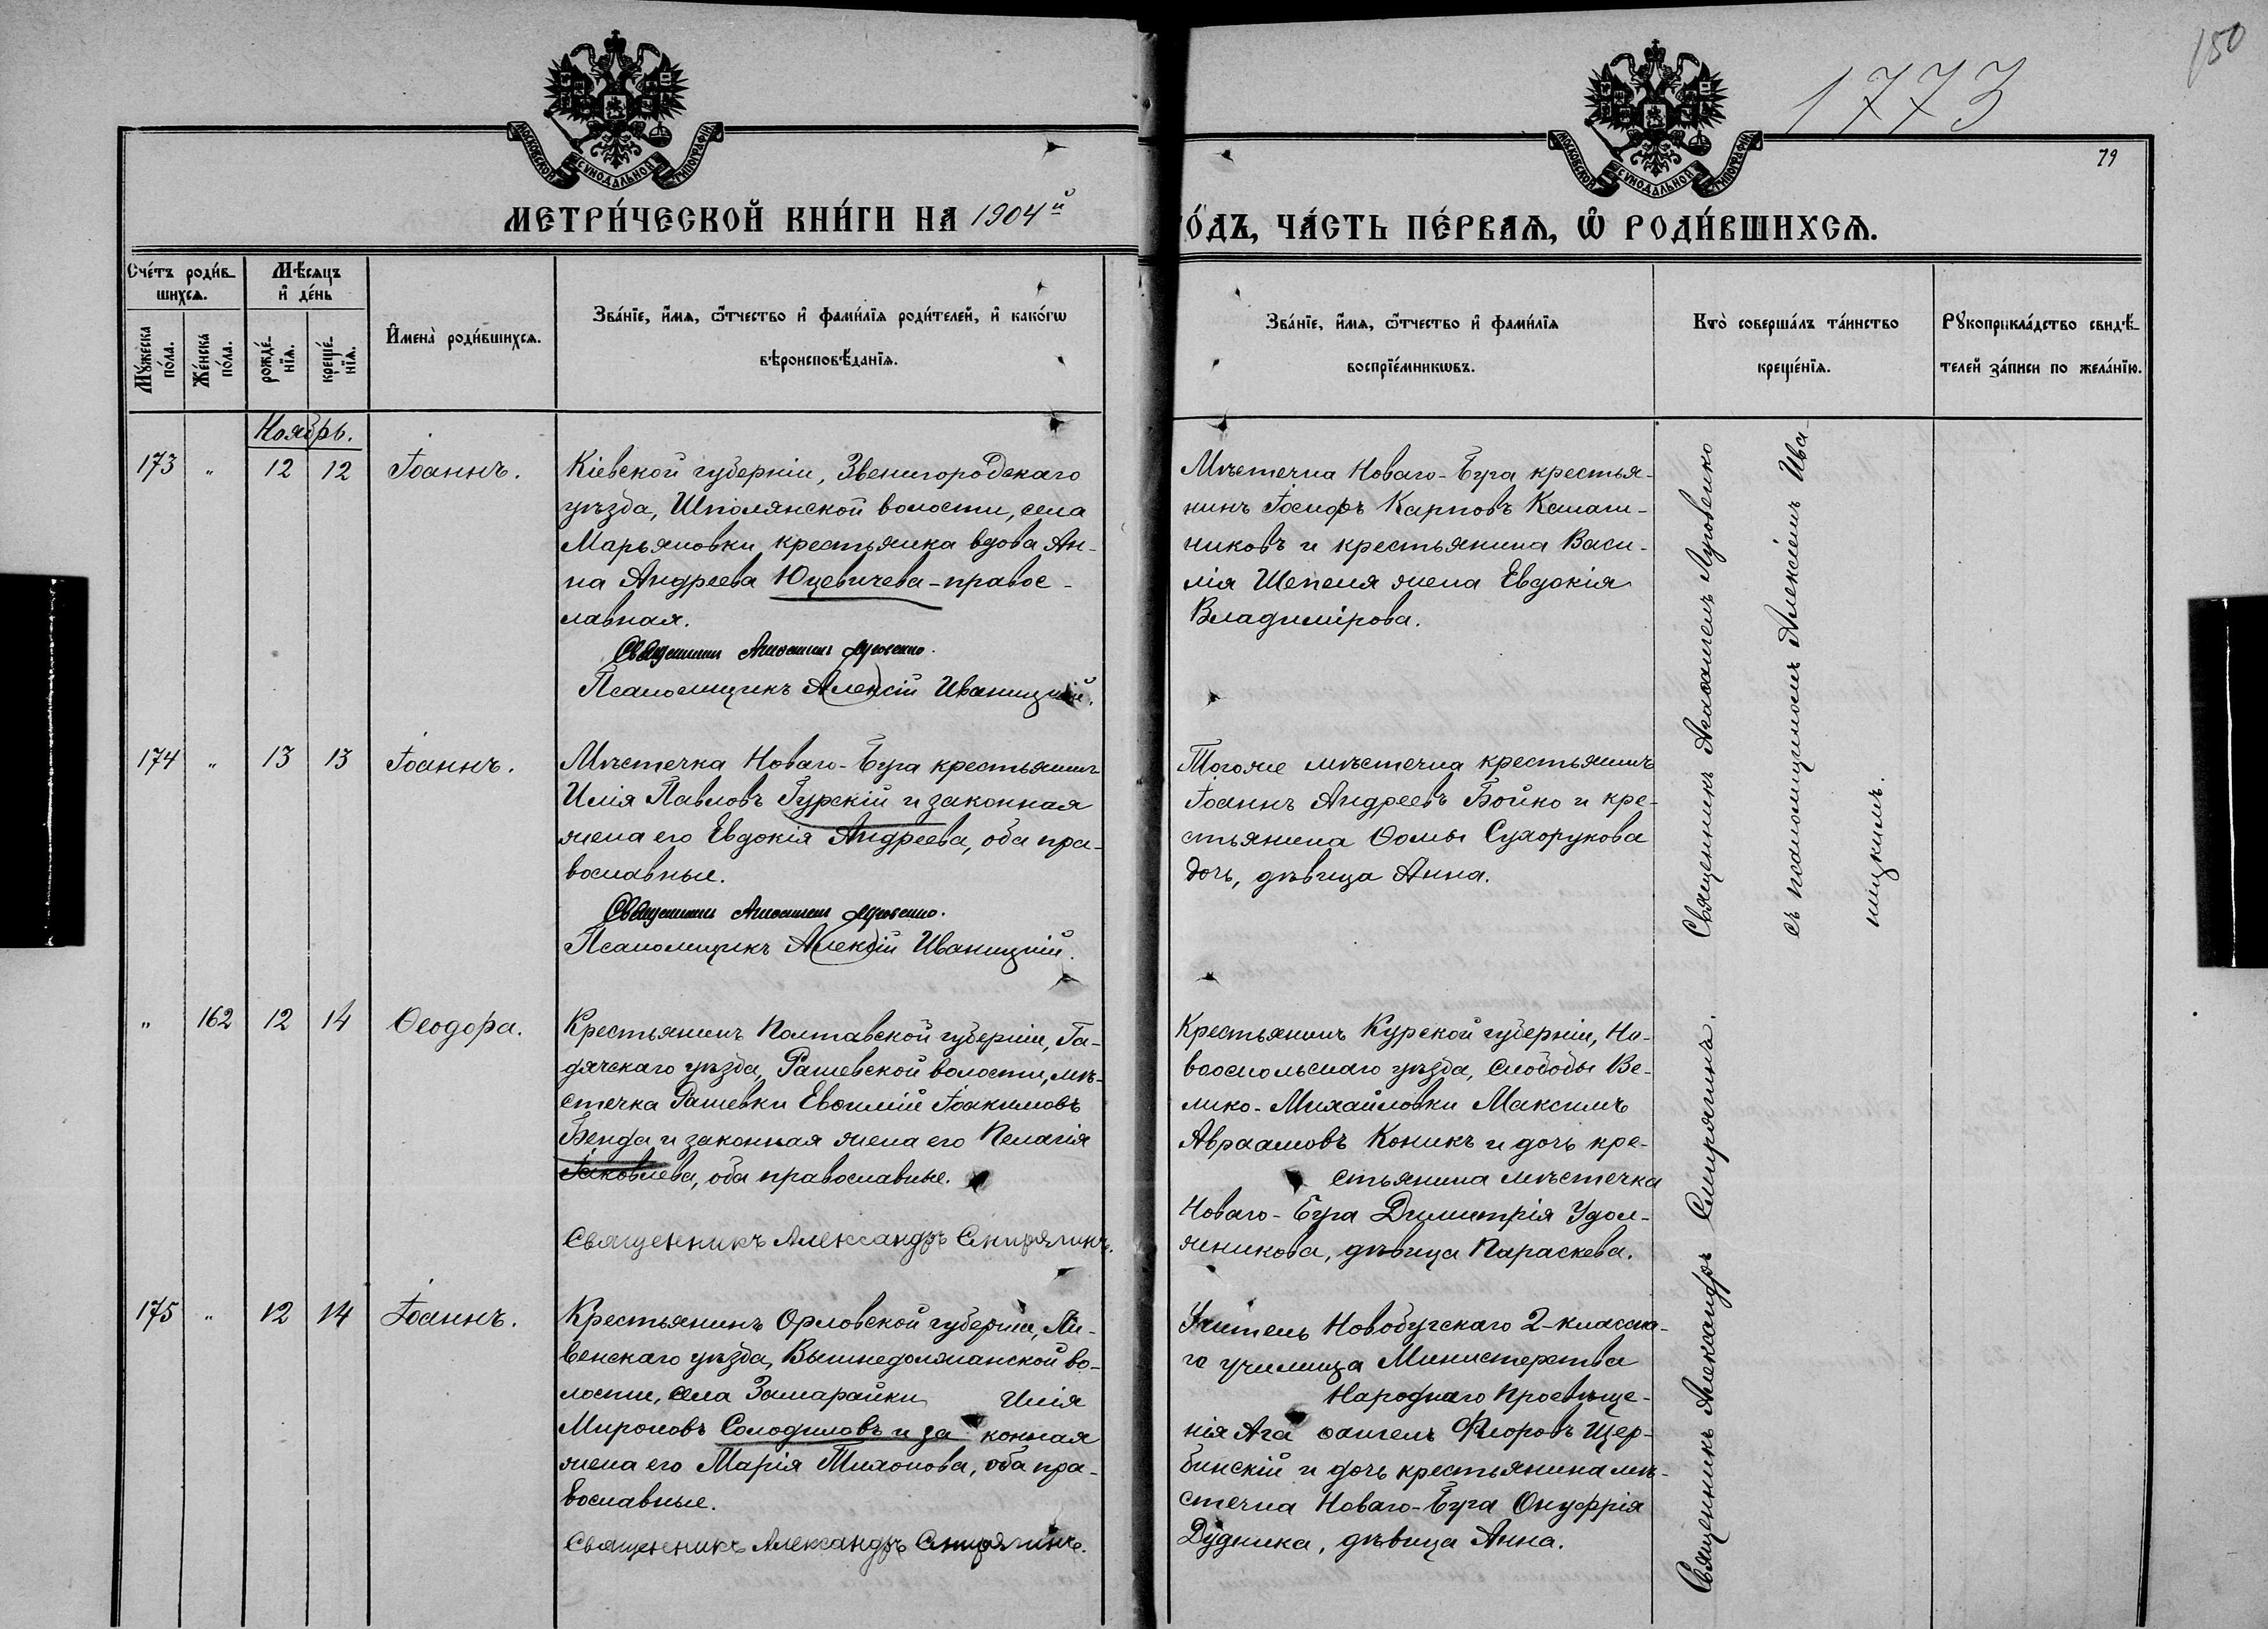 150
1773
79
МОСКОВСКОЙ СѴНОДАЛЬНОЙ ТИПОГРАФІИ
МОСКОВСКОЙ СѴНОДАЛЬНОЙ ТИПОГРАФІИ
МЕТРИ́ЧЕСКОЙ КНИ́ГИ НА 1904й
ГО́ДЪ, ЧА́СТЬ ПЕ́РВАѦ, Ѡ РОДИ́ВШИХСѦ.
Сче́тъ роди́в-
шихсѧ.
Мꙋ́жеска
по́ла.
Же́нска
по́ла.
Мѣ́сѧцъ
и҆ де́нь
рожде́-
нїѧ.
креще́-
нїѧ.
И҆мена̀ роди́вшихсѧ.
Зва́нїе, и҆́мѧ, ѻ҆́тчество и҆ фами́лїѧ роди́телей, и҆ како́гѡ
вѣроисповѣ́данїѧ.
Зва́нїе, и҆́мѧ, ѻ҆́тчество и҆ фами́лїѧ
воспрїе́мникѡвъ.
Кто̀ соверша́лъ та́инство
креще́нїѧ.
Рꙋкоприкла́дство свидѣ́-
телей за́писи по жела́нїю.
Ноябрь.
173 " 12 12 Іоаннъ.
Кіевской губерніи, Звенигородскаго
уѣзда, Шполянской волости, села
Марьяновки крестьянка вдова Ан-
на Андреева Юцевичева - правос-
лавная.
Священникъ Агаѳангелъ Луговенко.
Псаломщикъ Алексій Иваницкій.
Мѣстечка Новаго-Буга крестья-
нинъ Іосифъ Карповъ Калаш-
никовъ и крестьянина Васи-
лія Шепеля жена Евдокія
Владимірова.
174 " 13 13 Іоаннъ.
Мѣстечка Новаго-Буга крестьянинъ
Илія Павловъ Гурскій и законная
жена его Евдокія Андреева, оба пра-
вославные.
Священникъ Агаѳангелъ Луговенко.
Псаломщикъ Алексій Иваницкій.
Тогоже мѣстечка крестьянинъ
Іоаннъ Андреевъ Бойко и кре-
стьянина Ѳомы Сухорукова
дочь, дѣвица Анна.
Священникъ Агаѳангелъ Луговенко
съ псаломщикомъ Алексіемъ Ива-
ницкимъ.
" 162 12 14 Ѳеодора.
Крестьянинъ Полтавской губерніи, Га-
дячскаго уѣзда, Рашевской волости, мѣ-
стечка Рашевки Евѳимій Іоакимовъ
Бенда и законная жена его Пелагія
Іаковлева, оба православные.
Священникъ Александръ Смирягинъ.
Крестьянинъ Курской губерніи, Но-
вооскольскаго уѣзда, слободы Ве-
лико-Михайловки Максимъ
Авраамовъ Коникъ и дочь кре-
стьянина мѣстечка
Новаго-Буга Димитрія Удол-
жникова, дѣвица Параскева.
175 " 12 14 Іоаннъ.
Крестьянинъ Орловской губерніи, Ли-
венскаго уѣзда, Вышнедолжанской во-
лости, села Замарайки Илія
Мироновъ Солодиловъ и за конная
жена его Марія Тихонова, оба пра-
вославные.
Священникъ Александръ Смирягинъ.
Учитель Новобугскаго 2-классна-
го училища Министерства
Народнаго Просвѣще-
нія Ага ѳангелъ Флоровъ Щер-
бинскій и дочь крестьянина мѣ-
стечка Новаго-Буга Онуфрія
Дудника, дѣвица Анна.
Священникъ Александръ Смирягинъ.